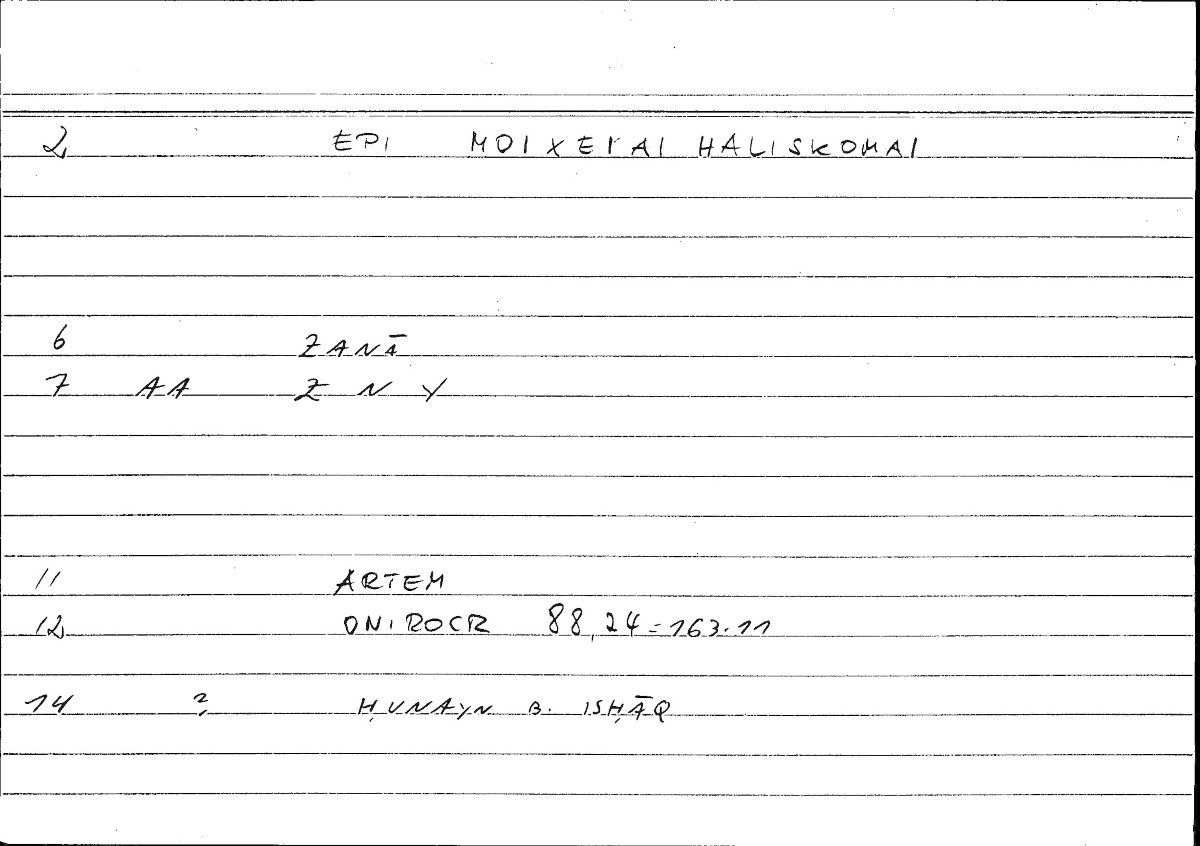 2 EPI MOIXEIAI HALISKOMAI
6 ZANĀ
7 AA Z N Y
11 ARTEM
12 ONIROCR 88,24=163.11
14 ? ḤUNAYN B. ISḤĀQ